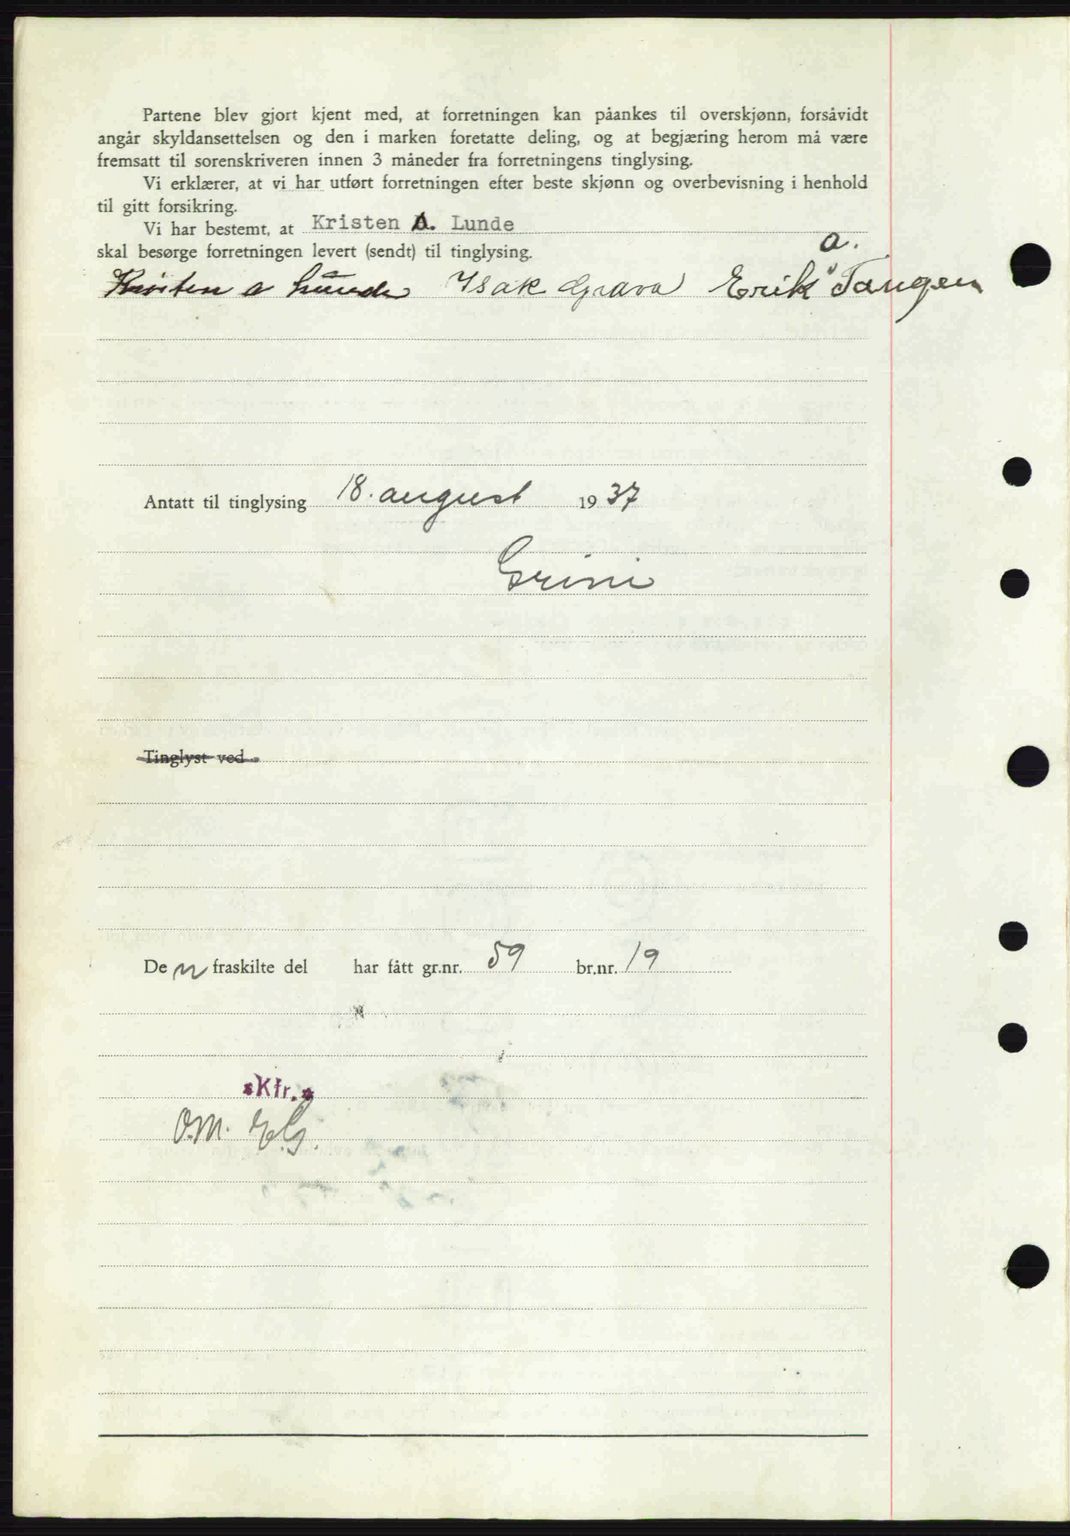 Partene blev gjort kjent med, at forretningen kan påankes til overskjønn, forsåvidt
angår skyldansettelsen og den i marken foretatte deling, og at begjæring herom må være
fremsatt til sorenskriveren innen 3 måneder fra forretningens tinglysing.
Vi erklærer, at vi har utført forretningen efter beste skjønn og overbevisning i henhold
til gitt forsikring.
Vi har bestemt, at Kristen A. Lunde
skal besørge forretningen levert (sendt) til tinglysing.
a.
Kristen a Lunde Isak Grava Erik Tangen
Antatt til tinglysing 18. august 1937
Grini
Tinglyst ved
De n fraskilte del har fått gr.nr. 59 br.nr. 19
Kfr.
O.M. E.G.